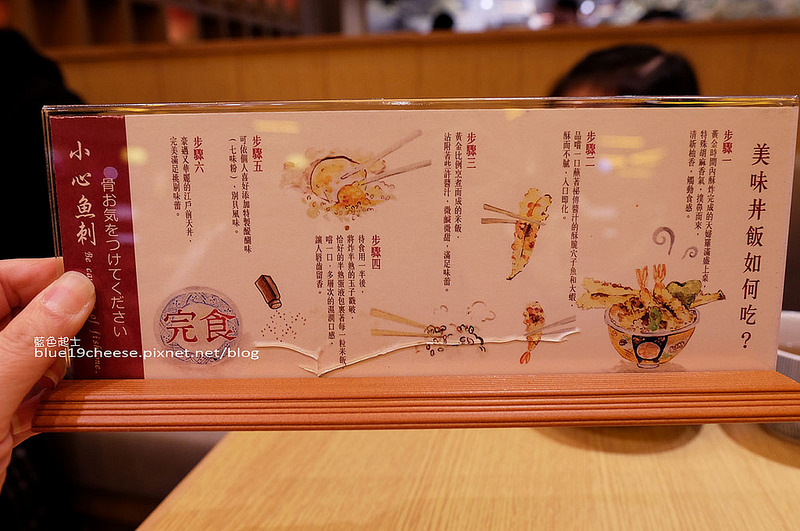 美味丼飯如何吃？
步驟一
黃金時間內酥炸完成的天婦羅滿盛上桌，
特殊胡麻香氣，撲鼻而來，
清新柚香，觸動食感。
步驟二
品嚐一口蘸著祕傳醬汁的酥脆穴子魚和大蝦，
酥而不膩，入口即化。
步驟三
黃金比例烹煮而成的米飯，
沾附著些許醬汁，微鹹微甜，滿足味蕾。
步驟四
待食用一半後，
將炸半熟的玉子戳破，
恰好的半熟蛋液包裹著每一粒米飯，
嚐一口，多層次的濕潤口感，
讓人唇齒留香。
步驟五
可依個人喜好添加特製醍醐味
（七味粉），別具風味。
步驟六
豪邁又華麗的江戶前天丼，
完美滿足挑剔味蕾。
完食
骨お気をつけてください
小心魚刺
藍色起士
blue19cheese.pixnet.net/blog